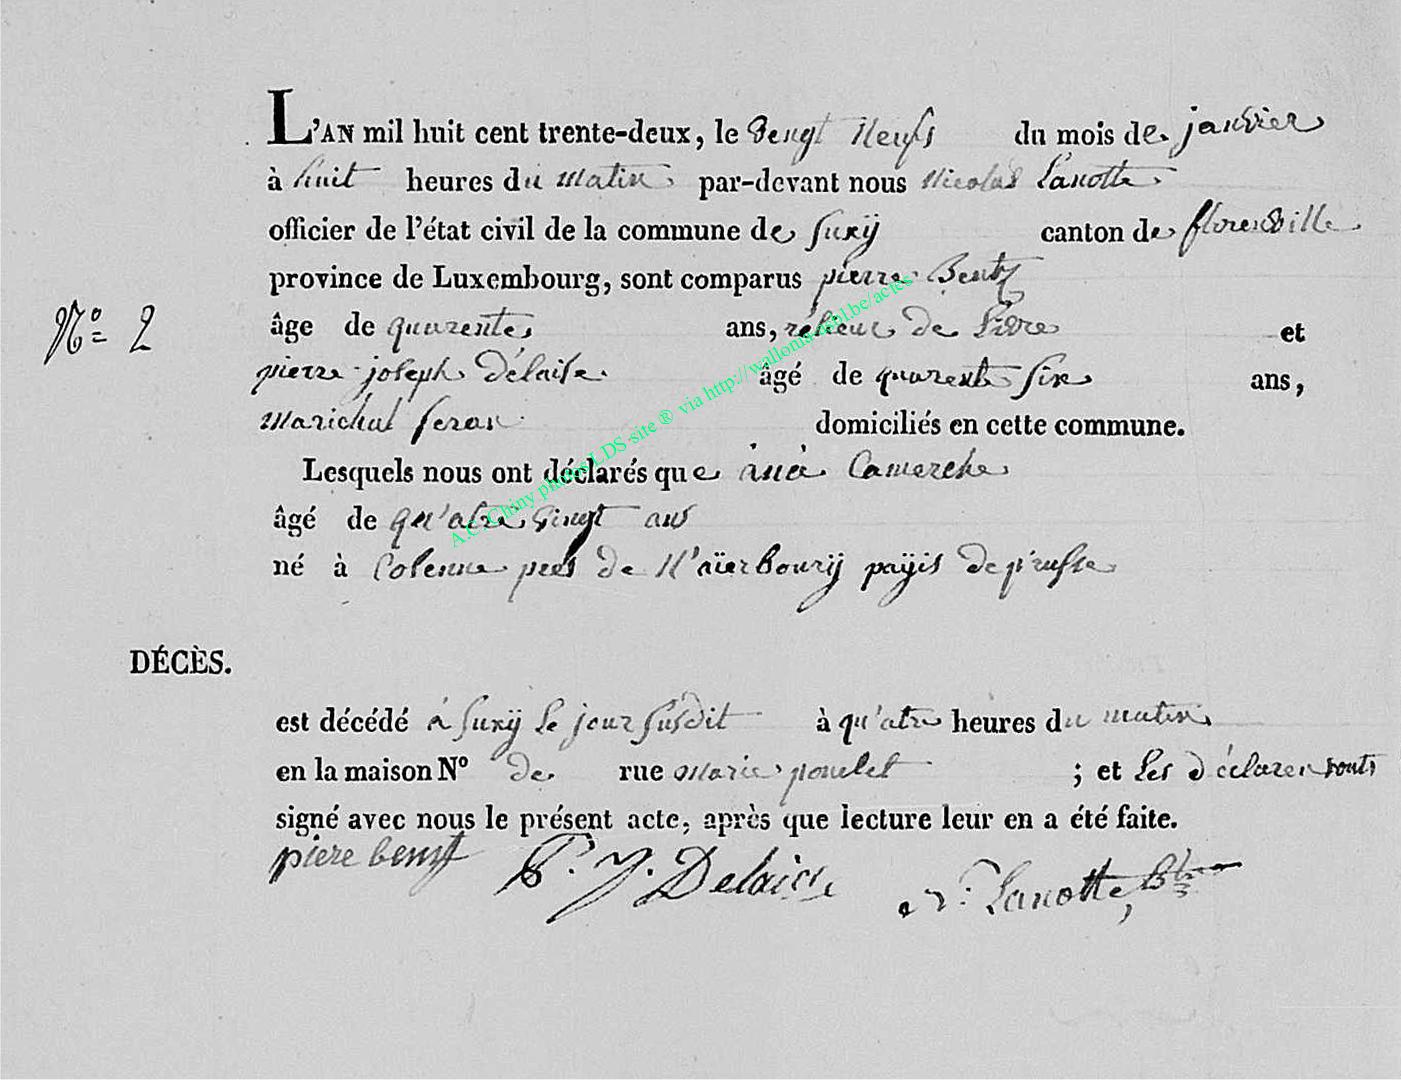 L'AN mil huit cent trente-deux, le vengt neufs du mois de janvier
à huit heures du matin par-devant nous Nicolas Lanotte
officier de l'état civil de la commune de Suxÿ canton de florenville
province de Luxembourg, sont comparus pierre Bentz
N.o 2
âge de quarente ans, rélieur de Livre et
pierre joseph Délaise âgé de quarente six ans,
Marichal feran domiciliés en cette commune.
Lesquels nous ont déclarés que Camerche
âgé de qu'atre vingt ans
né à Colenne prés de payis de prusse
DÉCÈS.
est décédé á Suxÿ le jour susdit à qu'atre heures du matin
en la maison No de rue Marie poulet ; et Les déclarent onts
signé avec nous le présent acte, après que lecture leur en a été faite.
piere P. J. Delaise N. Lanotte,
A.C. Chiny photos LDS site ® via http://wallonia-asbl.be/actes